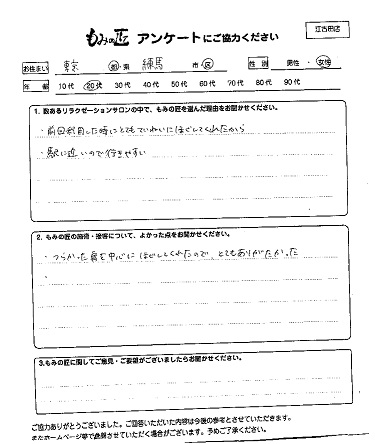 江古田店
もみの匠 アンケートにご協力ください
お住まい 東京 都・県 練馬 市・区 性別 男性・女性
年齢 10代 20代 30代 40代 50代 60代 70代 80代 90代
1. 数あるリラクゼーションサロンの中で、もみの匠を選んだ理由をお聞かせください。
・前回利用した時にとてもていねいにほぐしてくれたから
・駅に近いので行きやすい
2. もみの匠の施術・接客について、よかった点をお聞かせください。
・つらかった肩を中心にほぐしてくれたので、とてもありがたかった
・
3.もみの匠に関してご意見・ご要望がございましたらお聞かせください。
ご協力ありがとうございました。ご回答いただいた内容は今後の参考とさせていただきます。
またホームページ等で掲載させていただく場合がございます。予めご了承ください。